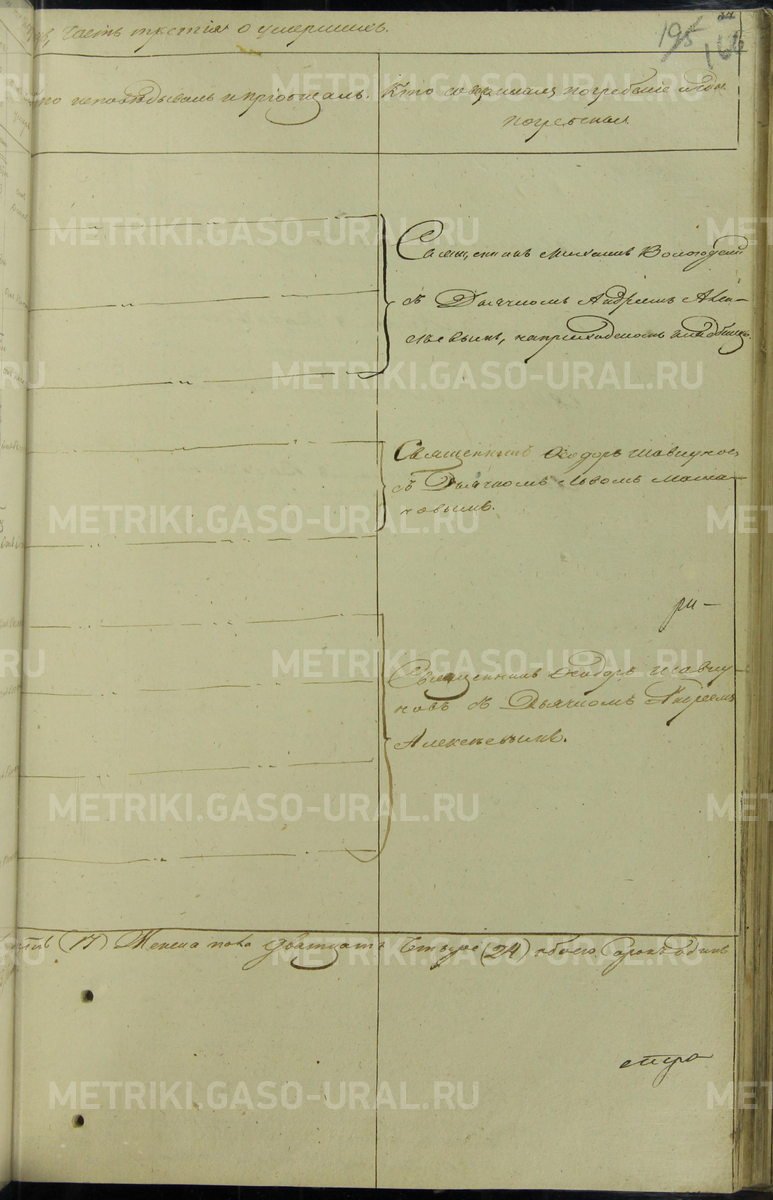 часть третія о умершихъ.
195
166
Кто исповѣдывалъ и пріобщалъ. Кто совершалъ погребеніе и гдѣ
погребены.
Священникъ Михаилъ Вологодскій
съ Дьячкомъ Андреемъ Алек-
сѣевымъ, на приходскомъ кладбищѣ.
Священникъ Ѳеодоръ Шавкунов
съ Дьячкомъ Львомъ
ковымъ.
ри-
Священникъ Ѳеодоръ Шавку-
новъ съ Дьячкомъ Андреемъ
Алексѣевымъ.
(17) Женска пола дватцать четыре (24) обоего сорокъ одинъ
METRIKI.GASO-URAL.RU